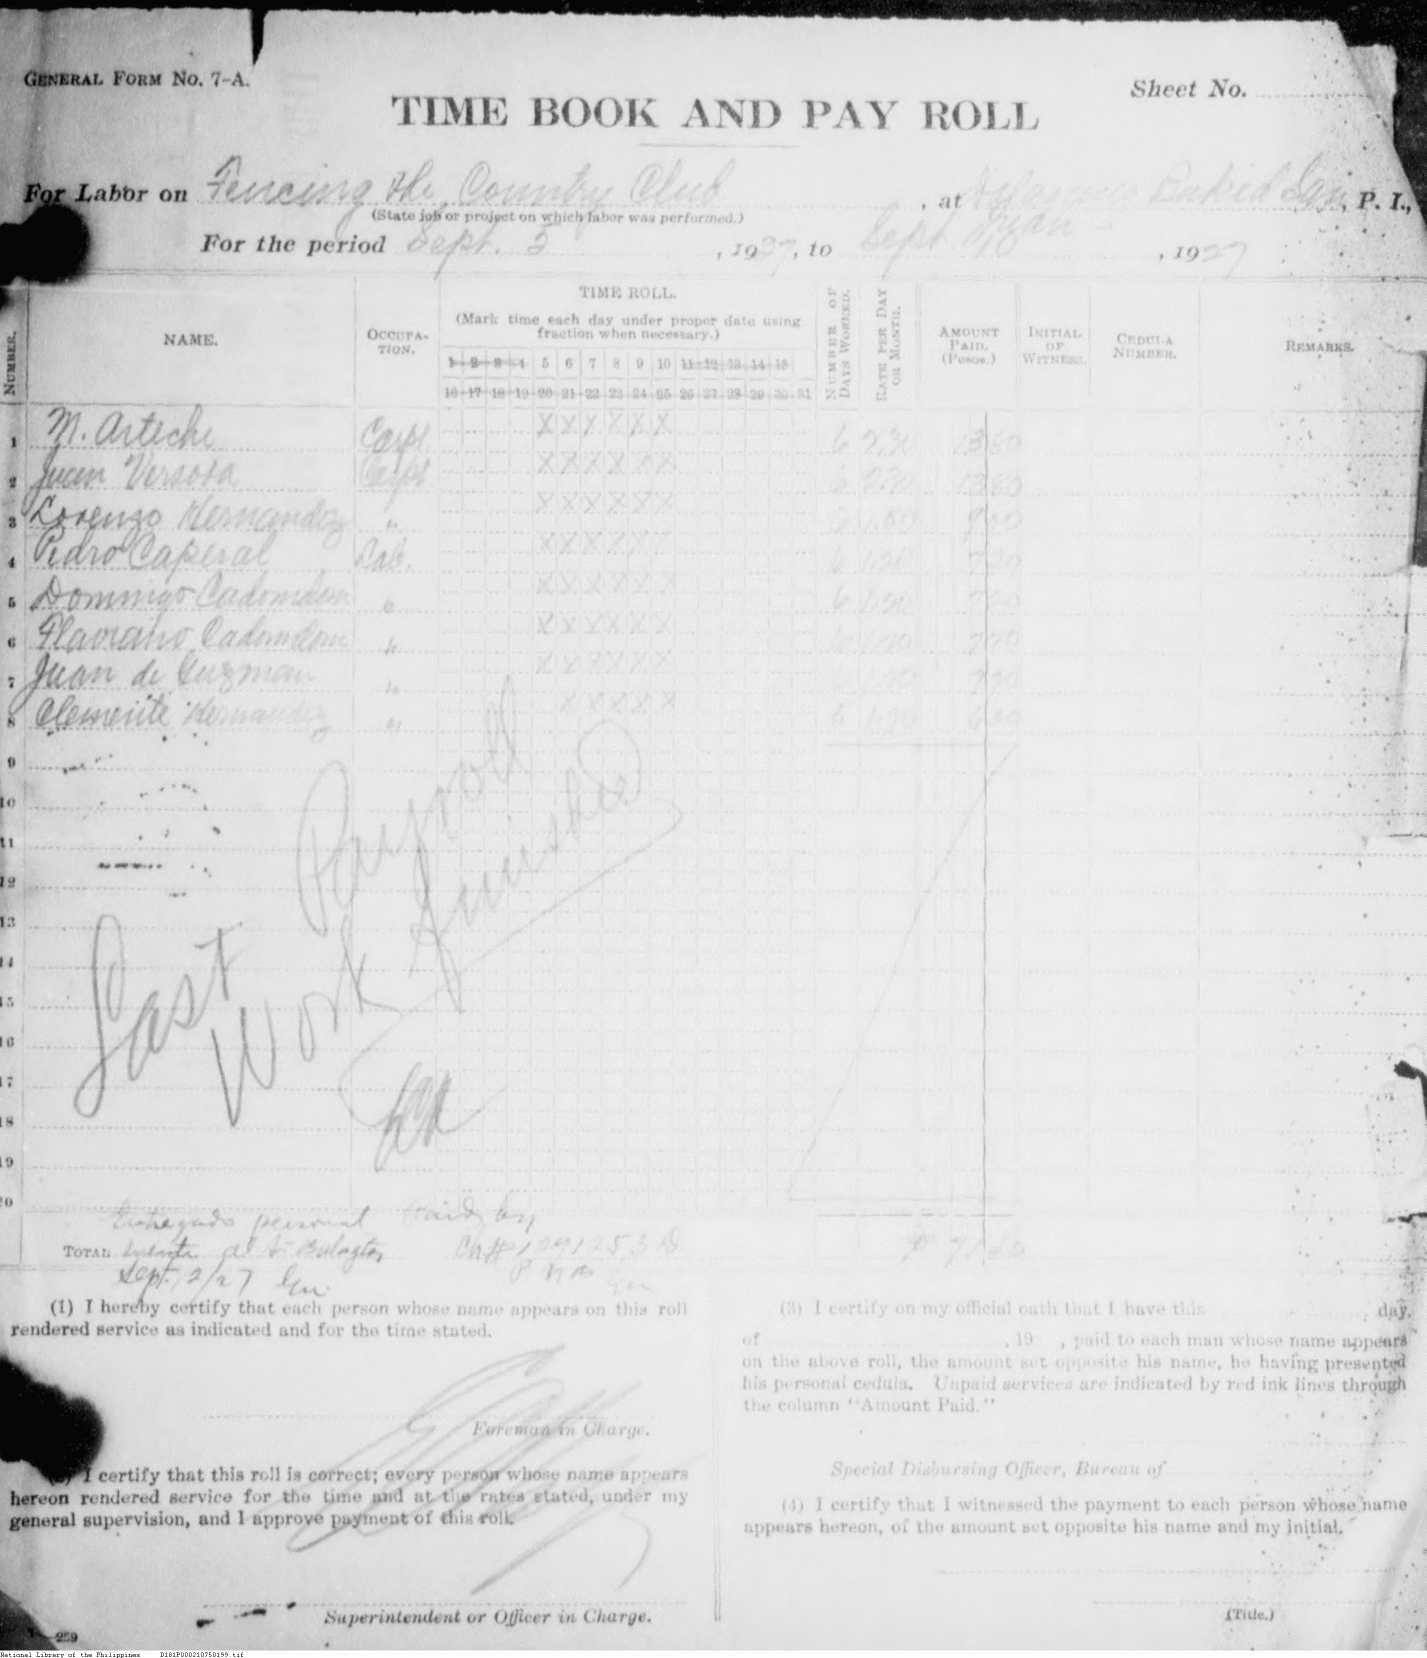 GENERAL FORM NO. 7-A.
Sheet No.
TIME BOOK AND PAY ROLL
For Labor on Fencing the Country Club, at San Juan, P. I.,
(State job or project on which labor was performed.)
For the period Sept. 5, 1927, to Sept. 10, 1927
NUMBER.
NAME.
OCCUPATION.
TIME ROLL.
(Mark time each day under proper date using
fraction when necessary.)
1 2 3 4 5 6 7 8 9 10 11 12 13 14 15
16 17 18 19 20 21 22 23 24 25 26 27 28 29 30 31
NUMBER OF DAYS WORKED.
RATE PER DAY OR MONTH.
AMOUNT PAID. (Pesos.)
INITIAL OF WITNESS.
CEDULA NUMBER.
REMARKS.
1 M. Arteche Carp. X X X X X X 6 2.30 13 80
2 Juan Versosa Carp. X X X X X X 6 2.30 13 80
3 Lorenzo Hernandez " X X X X X X 6 1.50 9 00
4 Pedro Caperal Lab. X X X X X X 6 1.20 7 20
5 Domingo " X X X X X X 6 1.20 7 20
6 Flaviano " X X X X X X 6 1.20 7 20
7 Juan de Guzman " X X X X X X 1.20 7 20
8 Clemente Hernandez " X X X X X 5 1.20 6 00
9
10
11
12
13
14
15
16
17
18
19
20
Last Payroll
Work Finished
Entregado personal Paid by
TOTAL ₱ 71.40
Sept. 12/27
(1) I hereby certify that each person whose name appears on this roll
rendered service as indicated and for the time stated.
Foreman in Charge.
(2) I certify that this roll is correct; every person whose name appears
hereon rendered service for the time and at the rates stated, under my
general supervision, and I approve payment of this roll.
Superintendent or Officer in Charge.
(3) I certify on my official oath that I have this day,
of , 19 , paid to each man whose name appears
on the above roll, the amount set opposite his name, he having presented
his personal cedula. Unpaid services are indicated by red ink lines through
the column "Amount Paid."
Special Disbursing Officer, Bureau of
(4) I certify that I witnessed the payment to each person whose name
appears hereon, of the amount set opposite his name and my initial.
(Title.)
259
National Library of the Philippines D181P000210750199.tif